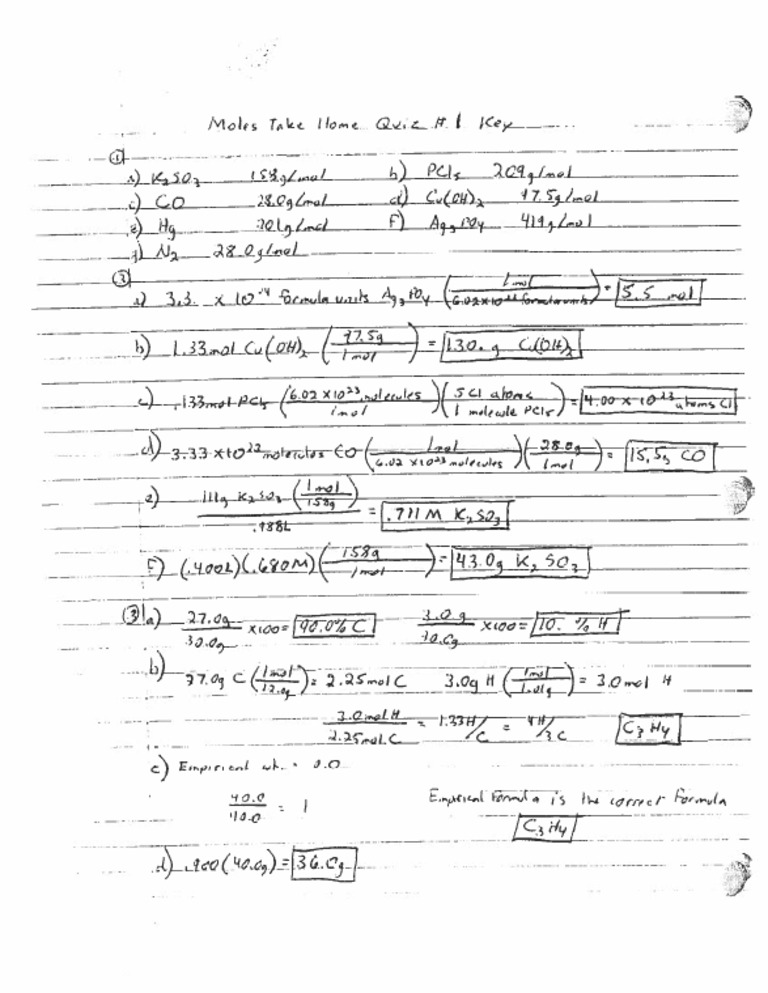 Moles Take Home Quiz #1 Key
①
a) K₂SO₃ 158g/mol b) PCl₅ 209g/mol
c) CO 28.0g/mol d) Cu(OH)₂ 97.5g/mol
e) Hg 201g/mol F) Ag₃PO₄ 419g/mol
g) N₂ 28.0g/mol
②
a) 3.3 × 10 formula units Ag₃PO₄ (1 mol / 6.02×10 formula units) = 5.5 mol
b) 1.33 mol Cu(OH)₂ (97.5g / 1 mol) = 130. g Cu(OH)₂
c) .133 mol PCl₅ (6.02 ×10²³ molecules / 1 mol)(5 Cl atoms / 1 molecule PCl₅) = 4.00 × 10²³ atoms Cl
d) 3.33 ×10²³ molecules CO (1 mol / 6.02 ×10²³ molecules)(28.0g / 1 mol) = 15.5g CO
e) 111g K₂SO₃ (1 mol / 158g) / .988L = .711 M K₂SO₃
F) (.400L)(.680M)(158g / 1 mol) = 43.0g K₂SO₃
③ a) 27.0g / 30.0g ×100 = 90.0% C 3.0g / 30.0g ×100 = 10. % H
b) 27.0g C (1 mol / 12.0g) = 2.25 mol C 3.0g H (1 mol / 1.01g) = 3.0 mol H
3.0 mol H / 2.25 mol C = 1.33 H/C = 4H/3C C₃H₄
c) Empirical wt. =
40.0 / 40.0 = 1 Empirical Formula is the correct formula
C₃H₄
d) .900(40.0g) = 36.0g